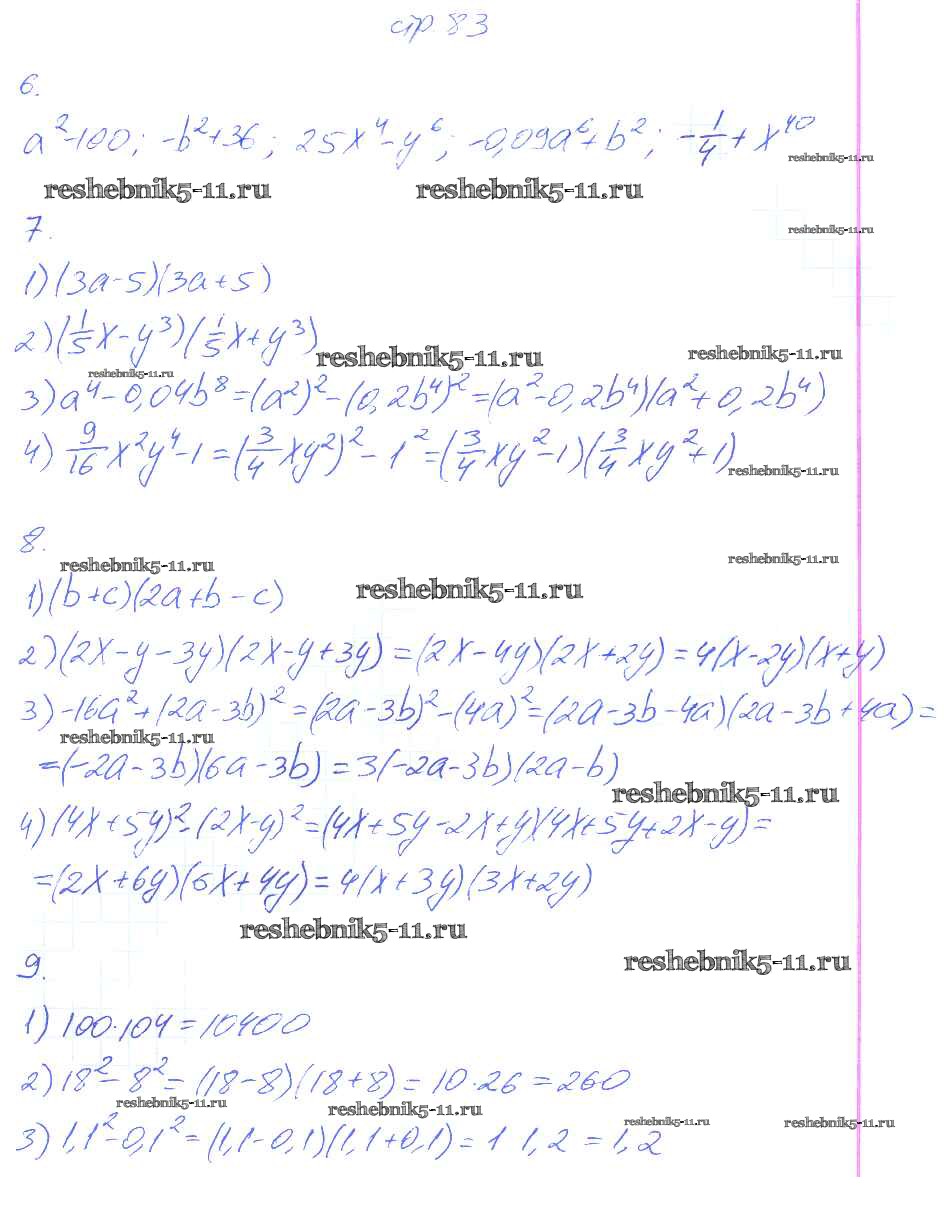 стр. 83
6.
a²-100; -b²+36; 25x⁴-y⁶; -0,09a⁶+b²; -1/4+x⁴⁰
reshebnik5-11.ru
reshebnik5-11.ru reshebnik5-11.ru
7.
reshebnik5-11.ru
1) (3a-5)(3a+5)
2) (1/5x-y³)(1/5x+y³)
reshebnik5-11.ru reshebnik5-11.ru
reshebnik5-11.ru
3) a⁴-0,04b⁸=(a²)²-(0,2b⁴)²=(a²-0,2b⁴)(a²+0,2b⁴)
4) 9/16x²y⁴-1=(3/4xy²)²-1²=(3/4xy²-1)(3/4xy²+1)
reshebnik5-11.ru
8.
reshebnik5-11.ru reshebnik5-11.ru
reshebnik5-11.ru
1) (b+c)(2a+b-c)
2) (2x-y-3y)(2x-y+3y)=(2x-4y)(2x+2y)=4(x-2y)(x+y)
3) -16a²+(2a-3b)²=(2a-3b)²-(4a)²=(2a-3b-4a)(2a-3b+4a)=
reshebnik5-11.ru
=(-2a-3b)(6a-3b)=3(-2a-3b)(2a-b)
reshebnik5-11.ru
4) (4x+5y)²-(2x-y)²=(4x+5y-2x+y)(4x+5y+2x-y)=
=(2x+6y)(6x+4y)=4(x+3y)(3x+2y)
reshebnik5-11.ru
reshebnik5-11.ru
9.
1) 100·104=10400
2) 18²-8²=(18-8)(18+8)=10·26=260
reshebnik5-11.ru reshebnik5-11.ru
reshebnik5-11.ru reshebnik5-11.ru
3) 1,1²-0,1²=(1,1-0,1)(1,1+0,1)=1 1,2=1,2